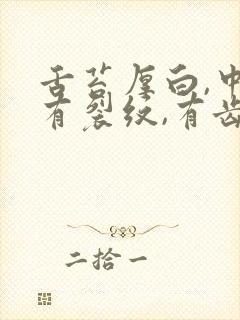 舌苔厚白,中
有裂纹,有齿
二拾一